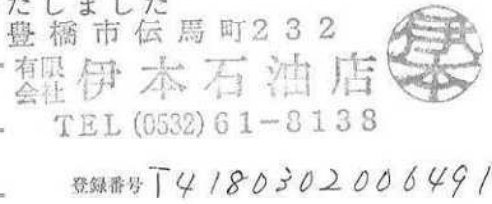 たしました
豊橋市伝馬町232
有限会社 伊本石油店
伊本
TEL (0532) 61-8138
登録番号 T4180302006491